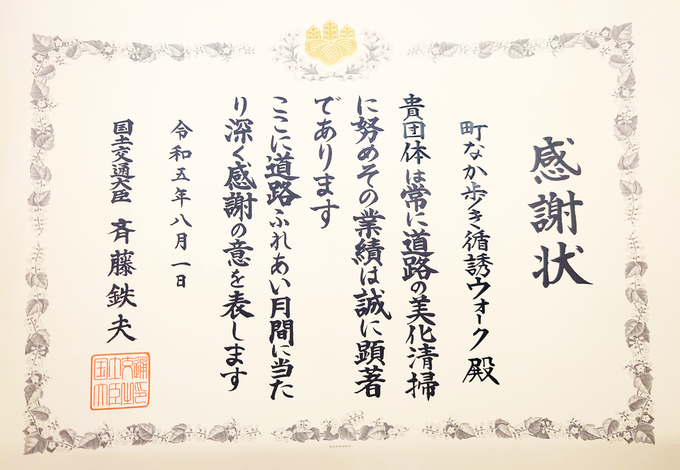 感謝状
町なか歩き循誘ウォーク 殿
貴団体は常に道路の美化清掃
に努めその業績は誠に顕著
であります
ここに道路ふれあい月間に当た
り深く感謝の意を表します
令和五年八月一日
国土交通大臣 斉藤鉄夫
国土交通
大臣之印